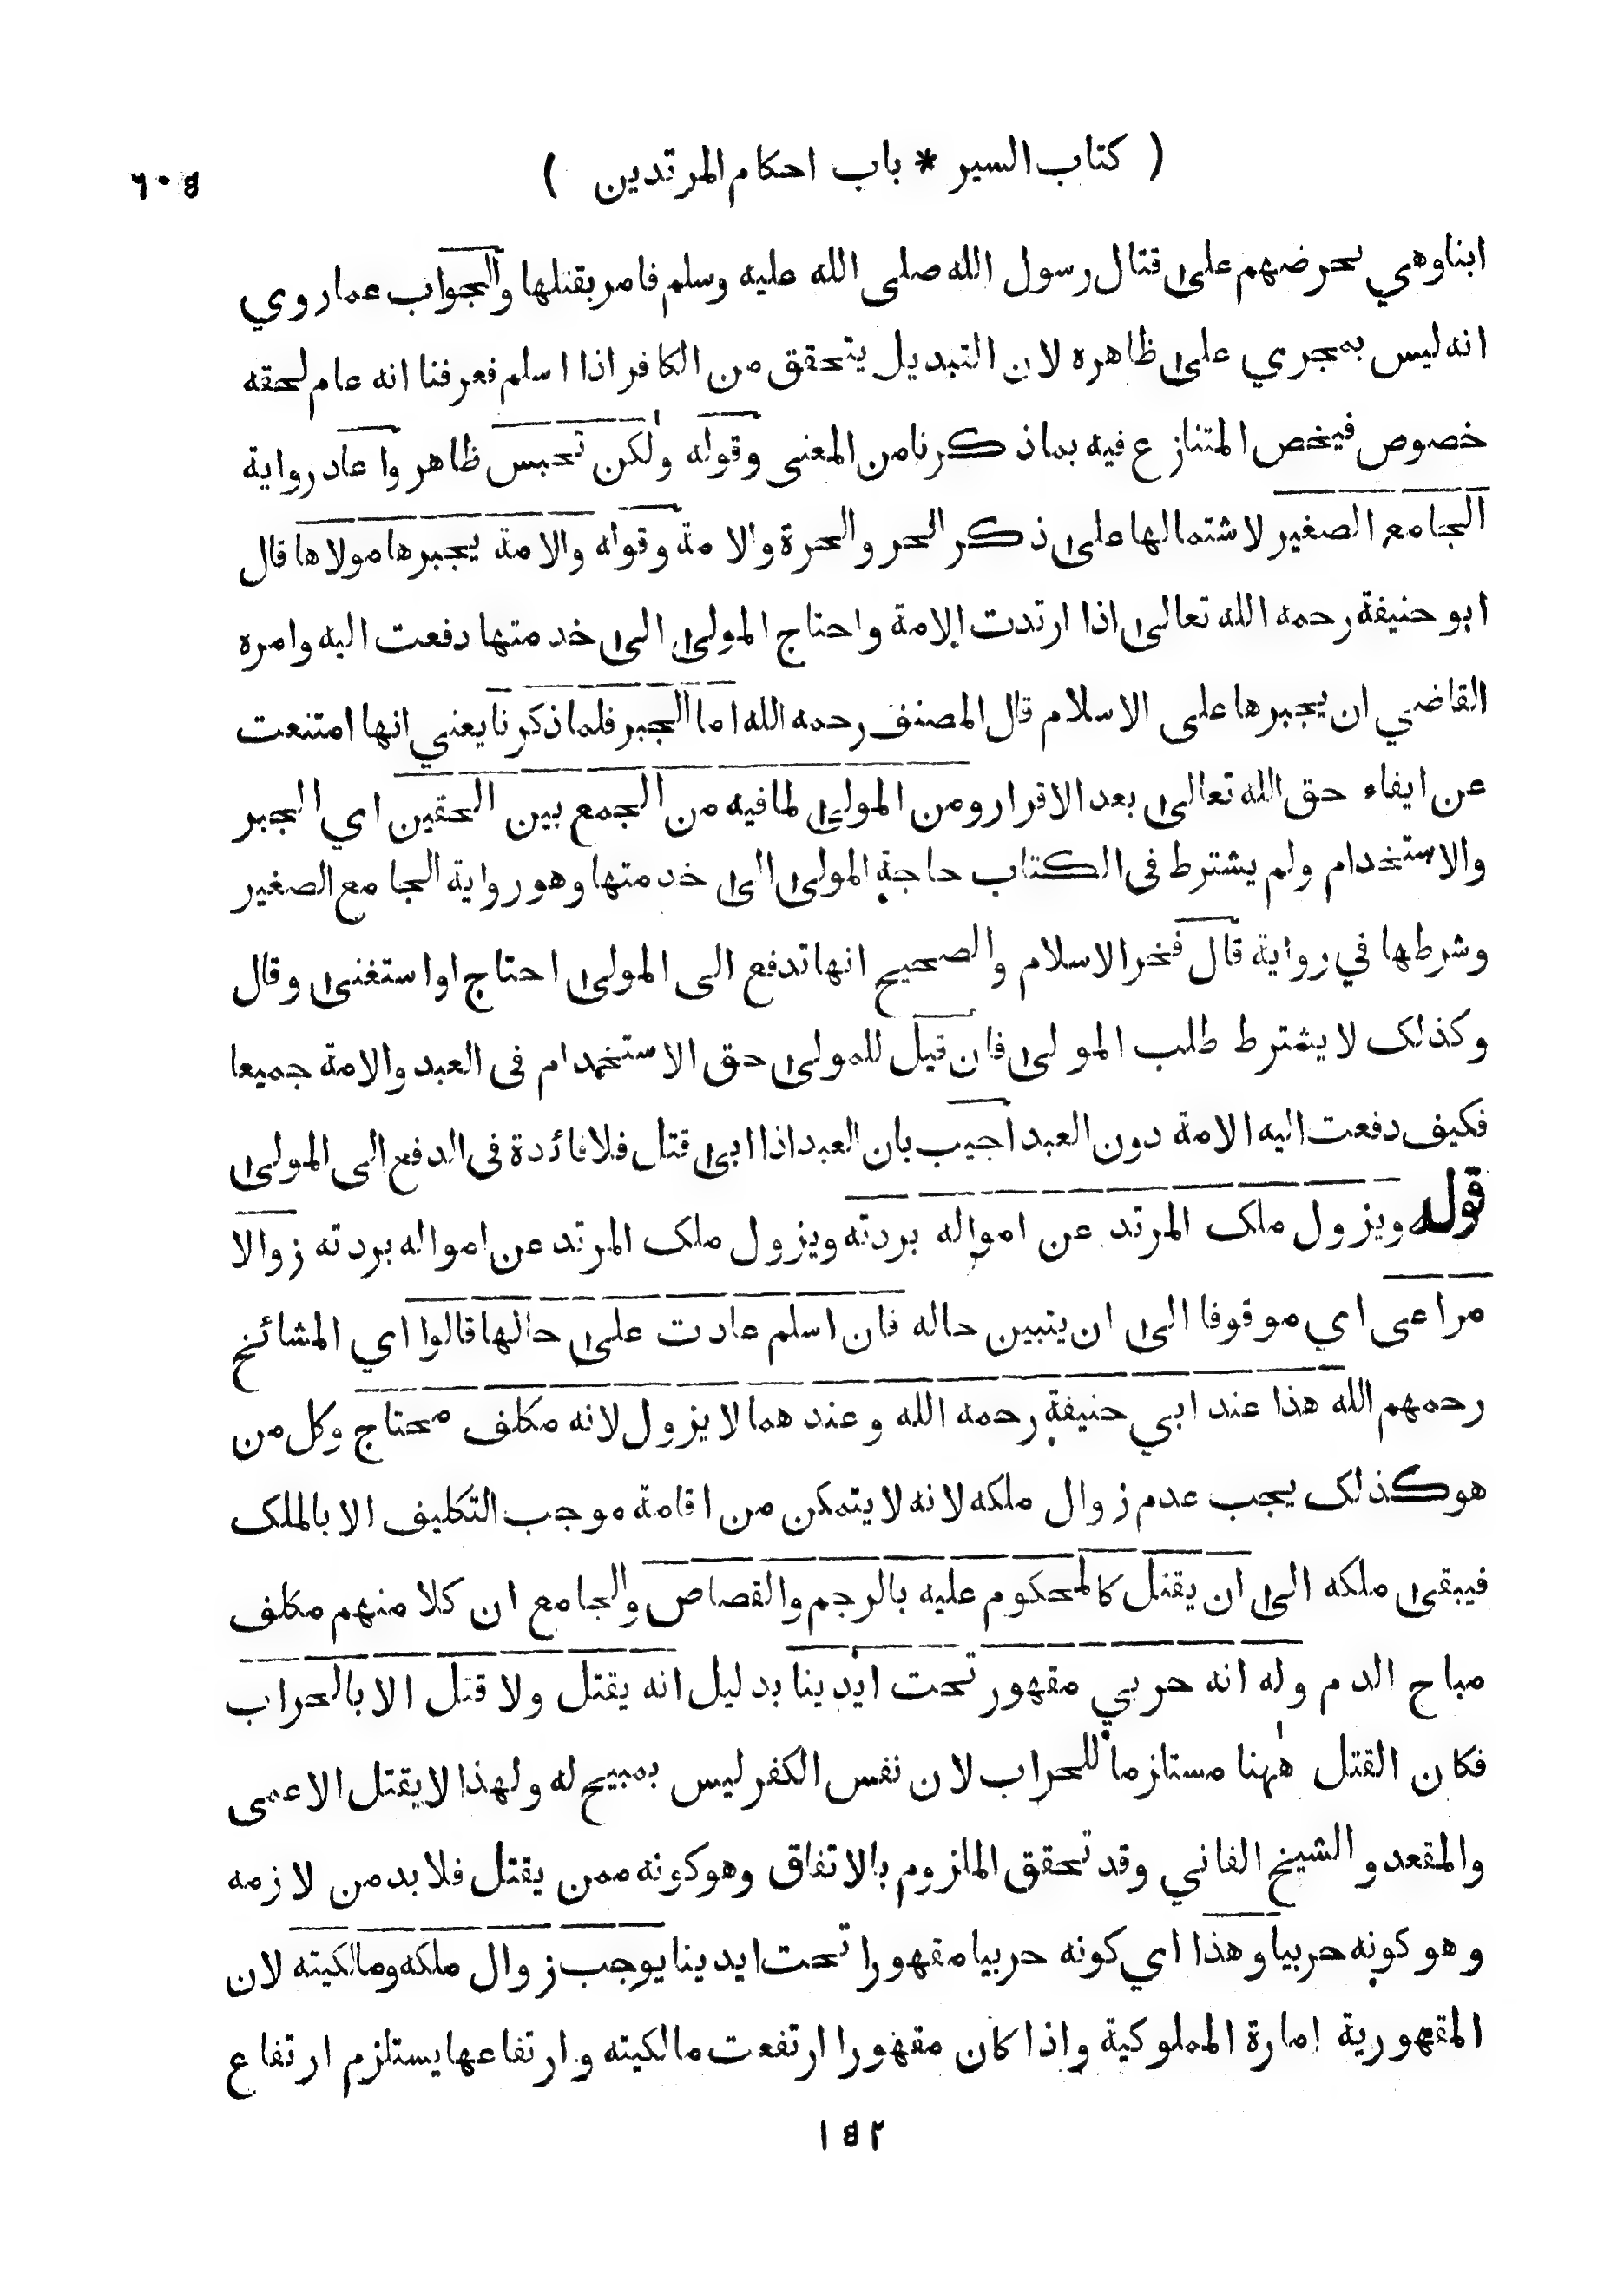 ( كتاب السير * باب احكام المرتدين )
٦٠٤
ابنا وهي تحرضهم على قتال رسول الله صلى الله عليه وسلم فامر بقتلها والجواب عما روي
انه ليس بمجرى على ظاهره لان التبديل يتحقق من الكافر اذا اسلم فعرفنا انه عام لحقه
خصوص فيخص المتنازع فيه بما ذكرنا من المعنى وقوله ولكن تحبس ظاهر واعاد رواية
الجامع الصغير لاشتمالها على ذكر الحر والحرة والامة وقوله والامة يجبرها مولاها قال
ابو حنيفة رحمه الله تعالى اذا ارتدت الامة واحتاج المولى الى خدمتها دفعت اليه وامره
القاضي ان يجبرها على الاسلام قال المصنف رحمه الله اما الجبر فلما ذكرنا يعني انها امتنعت
عن ايفاء حق الله تعالى بعد الاقرار ومن المولى لما فيه من الجمع بين الحقين اي الجبر
والاستخدام ولم يشترط في الكتاب حاجة المولى الى خدمتها وهو رواية الجامع الصغير
وشرطها في رواية قال فخر الاسلام والصحيح انها تدفع الى المولى احتاج او استغنى وقال
وكذلك لا يشترط طلب المولى فان قيل للمولى حق الاستخدام في العبد والامة جميعا
فكيف دفعت اليه الامة دون العبد اجيب بان العبد اذا ابى قتل فلا فائدة في الدفع الى المولى
قوله ويزول ملك المرتد عن امواله بردته ويزول ملك المرتد عن امواله بردته زوالا
مراعى اي موقوفا الى ان يتبين حاله فان اسلم عادت على حالها قالوا اي المشائخ
رحمهم الله هذا عند ابي حنيفة رحمه الله وعندهما لا يزول لانه مكلف محتاج وكل من
هو كذلك يجب عدم زوال ملكه لانه لا يتمكن من اقامة موجب التكليف الا بالملك
فيبقى ملكه الى ان يقتل كالمحكوم عليه بالرجم والقصاص والجامع ان كلا منهم مكلف
مباح الدم وله انه حربي مقهور تحت ايدينا بدليل انه يقتل ولا قتل الا بالحراب
فكان القتل ههنا مستلزما للحراب لان نفس الكفر ليس بمبيح له ولهذا لا يقتل الاعمى
والمقعد والشيخ الفاني وقد تحقق الملزوم بالاتفاق وهو كونه ممن يقتل فلا بد من لازمه
وهو كونه حربيا وهذا اي كونه حربيا مقهورا تحت ايدينا يوجب زوال ملكه ومالكيته لان
المقهورية امارة المملوكية واذا كان مقهورا ارتفعت مالكيته وارتفاعها يستلزم ارتفاع
١٤٢